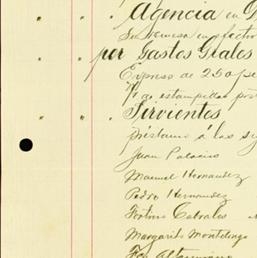 " " " Agencia en
Su remesa en
" " por Gastos Grales
Expreso de 250
estampillas
" " " Sirvientes
préstamo á las
Juan Palacio
Manuel Hernandez
Pedro Hernandez
Cabrales
Margarito Montelongo